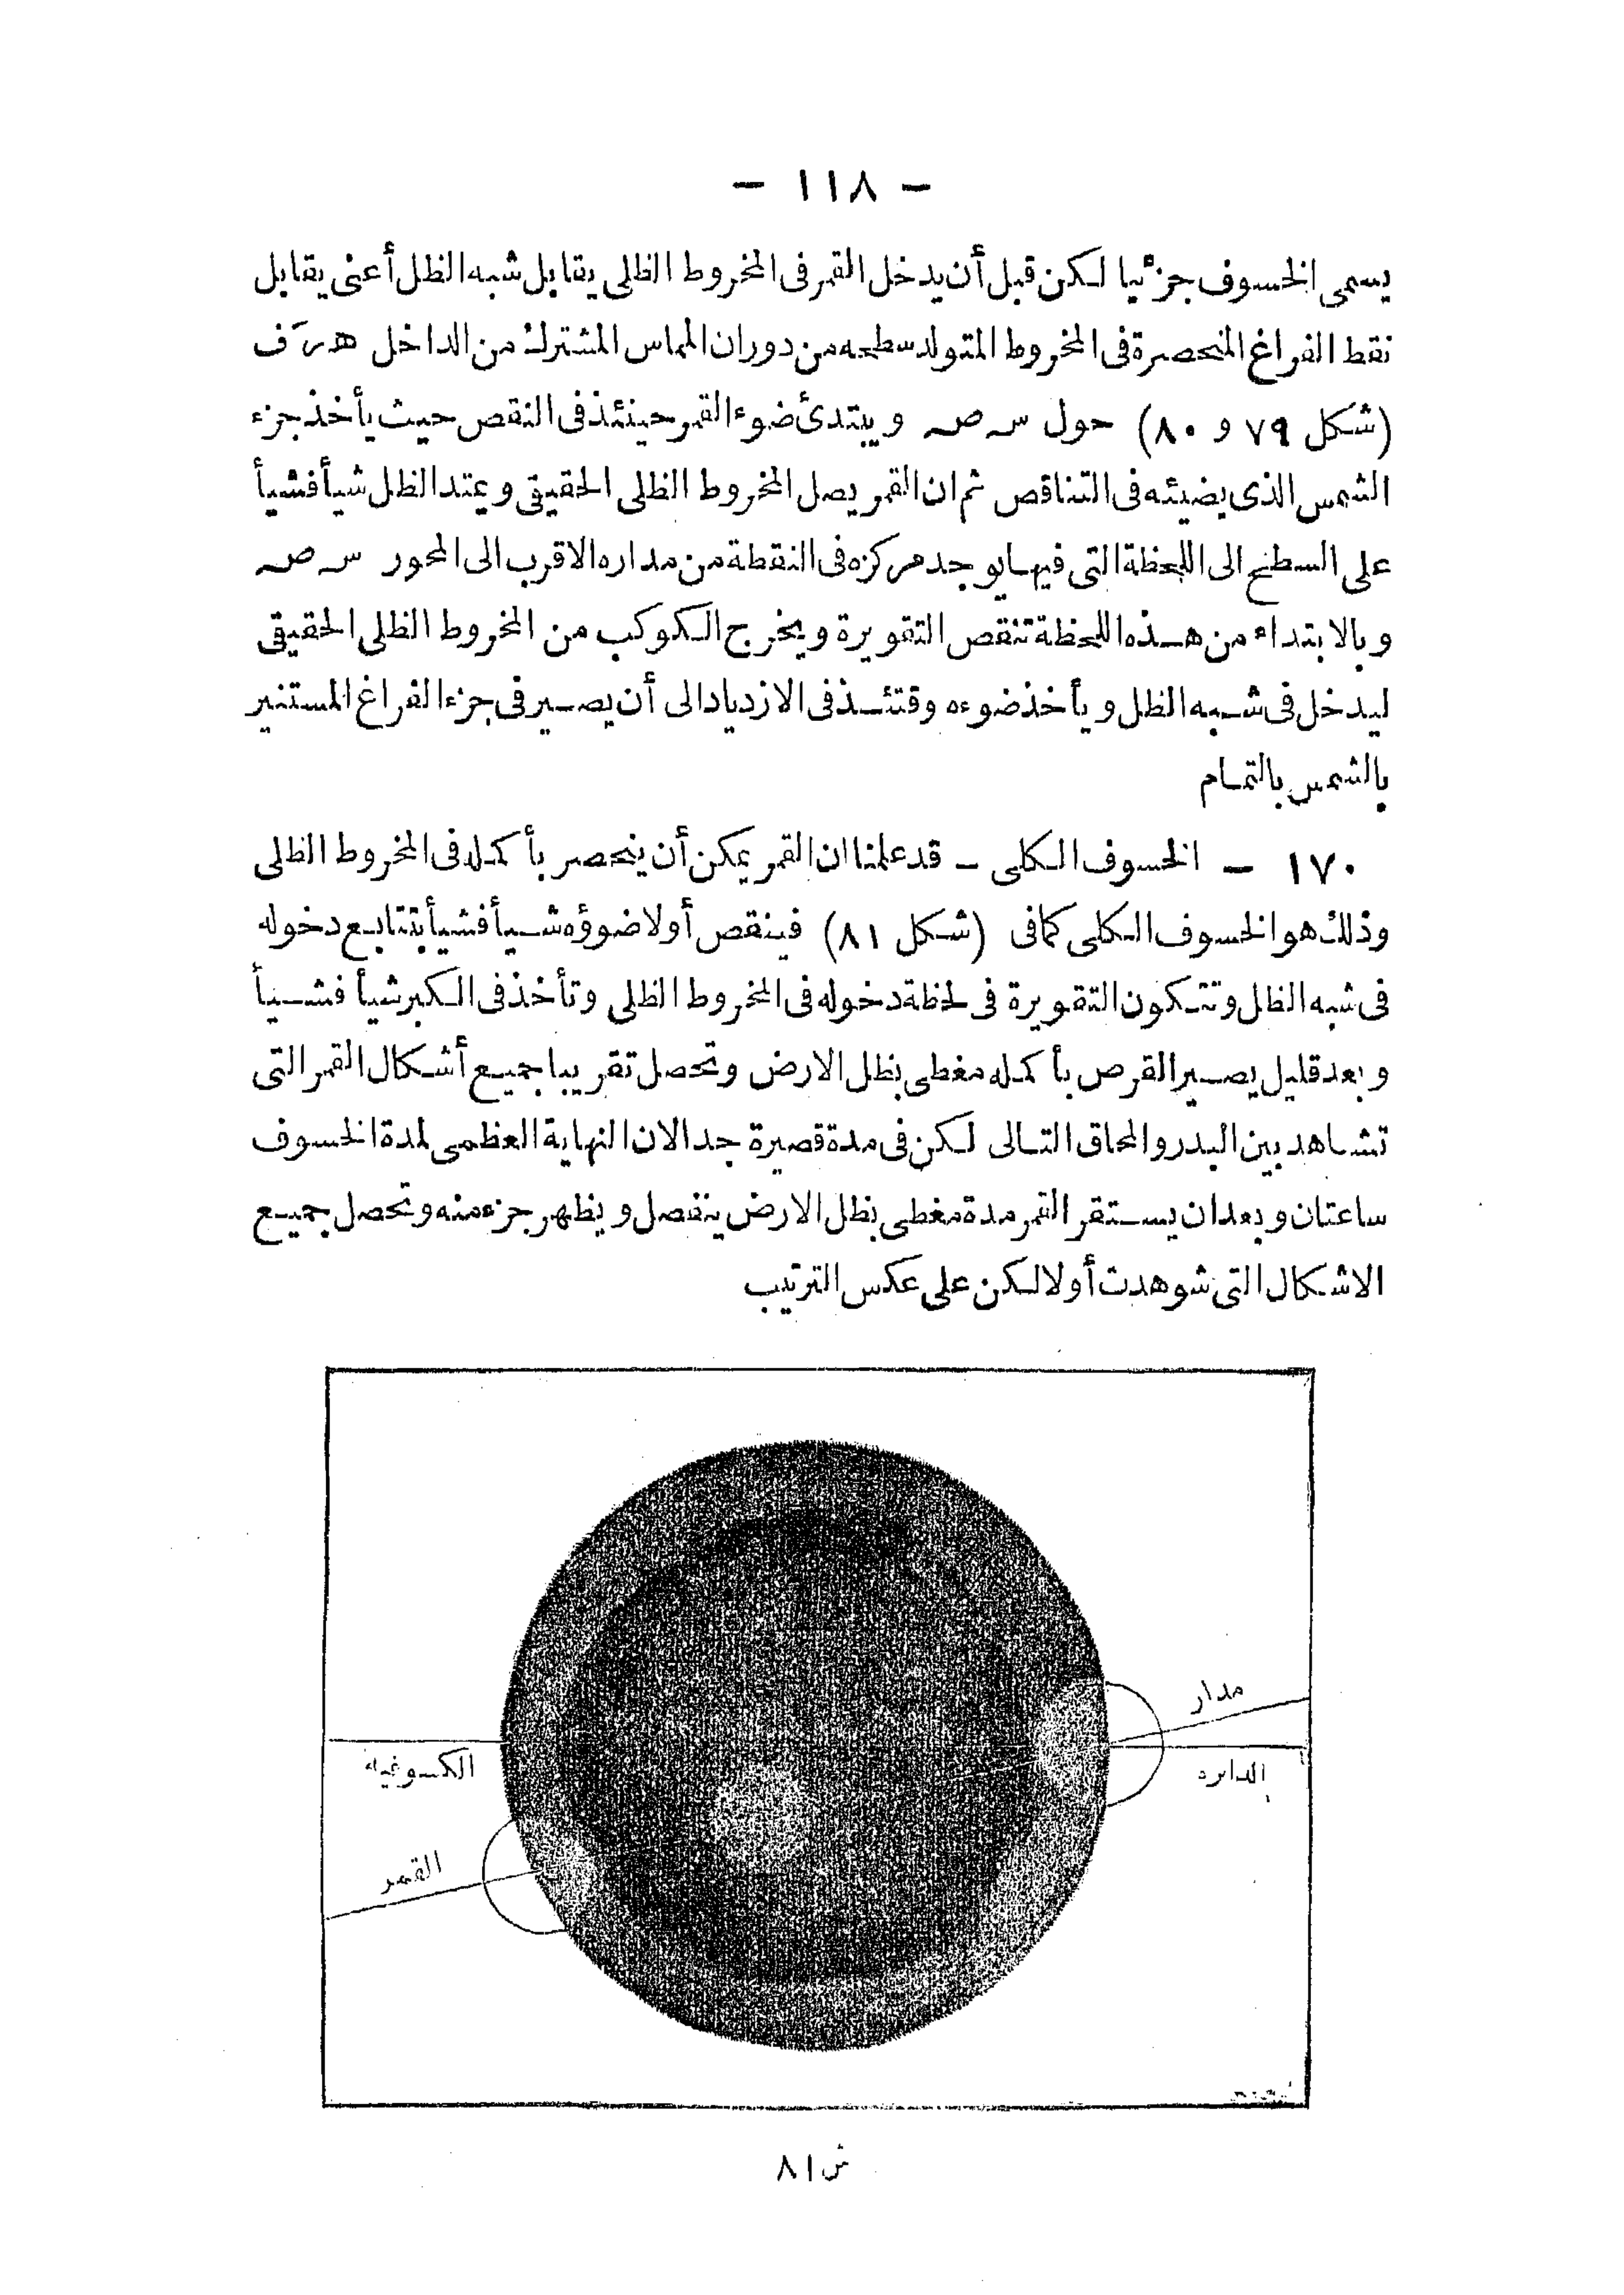 — ١١٨ —
يسمى الخسوف جزئيا لكن قبل أن يدخل القمر فى المخروط الظلى يقابل شبه الظل أعنى يقابل
نقط الفراغ المنحصرة فى المخروط المتولد سطحه من دوران المماس المشترك من الداخل
(شكل ٧٩ و ٨٠) حول س ص ويبتدئ ضوء القمر حينئذ فى النقص حيث يأخذ جزء
الشمس الذى يضيئه فى التناقص ثم ان القمر يصل المخروط الظلى الحقيقى ويمتد الظل شيأ فشيأ
على السطح الى اللحظة التى فيها يوجد مركزه فى النقطة من مداره الاقرب الى المحور س ص
وبالابتداء من هذه اللحظة تنقص التقويرة ويخرج الكوكب من المخروط الظلى الحقيقى
ليدخل فى شبه الظل ويأخذ ضوءه وقتئذ فى الازدياد الى أن يصير فى جزء الفراغ المستنير
بالشمس بالتمام
١٧٠ — الخسوف الكلى — قد علمنا ان القمر يمكن أن ينحصر بأكمله فى المخروط الظلى
وذلك هو الخسوف الكلى كما فى (شكل ٨١) فينقص أولا ضوؤه شيأ فشيأ بتتابع دخوله
فى شبه الظل وتتكون التقويرة فى لحظة دخوله فى المخروط الظلى وتأخذ فى الكبر شيأ فشيأ
وبعد قليل يصير القرص بأكمله مغطى بظل الارض وتحصل تقريبا جميع أشكال القمر التى
تشاهد بين البدر والمحاق التالى لكن فى مدة قصيرة جدا لان النهاية العظمى لمدة الخسوف
ساعتان وبعد ان يستقر القمر مدة مغطى بظل الارض ينفصل ويظهر جزء منه وتحصل جميع
الاشكال التى شوهدت أولا لكن على عكس الترتيب
مدار
الدايره
الكسوفيه
القمر
ش ٨١